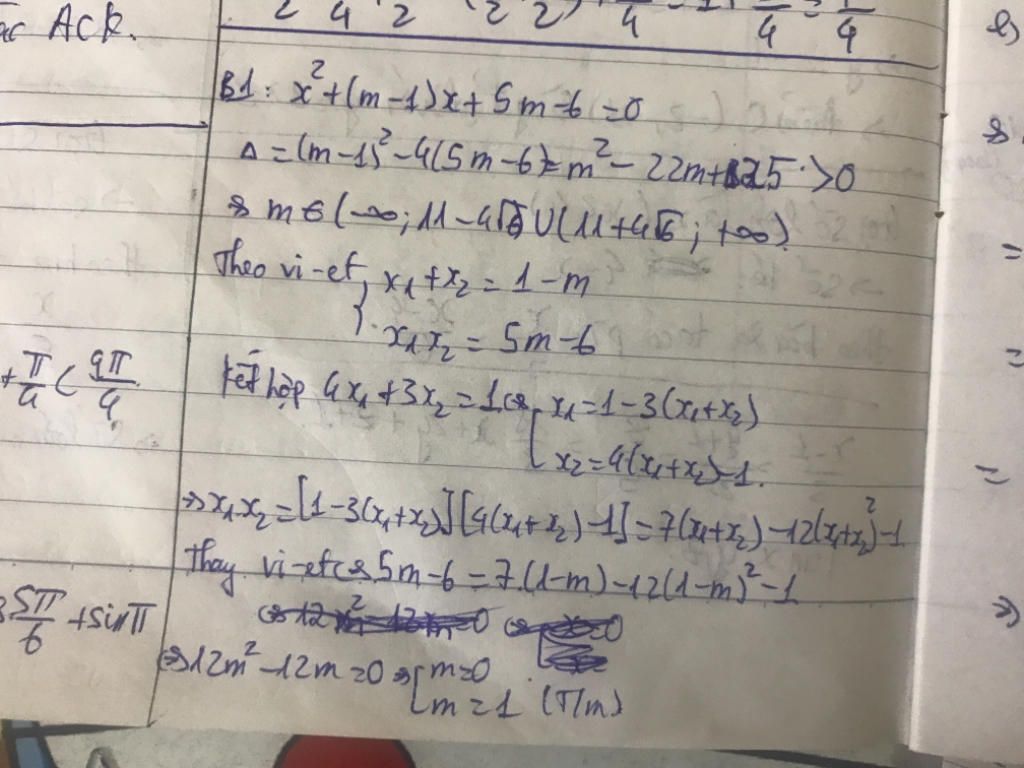 ác Ack.
B1: x²+(m-1)x+5m-6=0
Δ=(m-1)²-4(5m-6)=m²-22m+25>0
m∈(-∞;11-4√6)∪(11+4√6;+∞).
Theo vi-et { x₁+x₂=1-m
x₁x₂=5m-6
kết hợp 4x₁+3x₂=1⇔[x₁=1-3(x₁+x₂)
x₂=4(x₁+x₂)-1.
⇒x₁x₂=[1-3(x₁+x₂)][4(x₁+x₂)-1]=7(x₁+x₂)-12(x₁+x₂)²-1
Thay vi-et⇔5m-6=7.(1-m)-12(1-m)²-1
⇔12m²-12m=0⇔[m=0
m=1 (T/m)
+π/4<9π/4
5π/6+sinπ